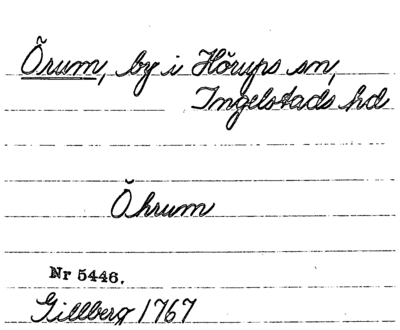 Örum, by i Hörups sn,
Ingelstads hd
Öhrum
Nr 5446.
Gillberg 1767